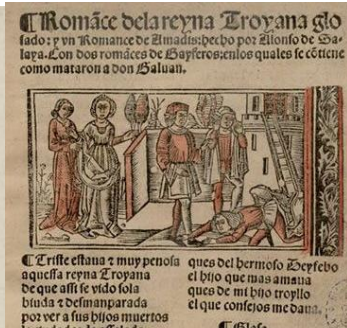 ¶ Romãce dela reyna Troyana glo
sado: y vn Romance de Amadis: hecho por Alonso de Sa-
laya. Con dos romãces de Gayferos: enlos quales se cõtiene
como mataron a don Galuan.
¶ Triste estaua ⁊ muy penosa
aquessa reyna Troyana
de que assi se vido sola
biuda ⁊ desmanparada
por ver a sus hijos muertos
ques del hermoso Deyfebo
el hijo que mas amaua
ques de mi hijo troyllo
el que consejos me daua.
¶ Glosa